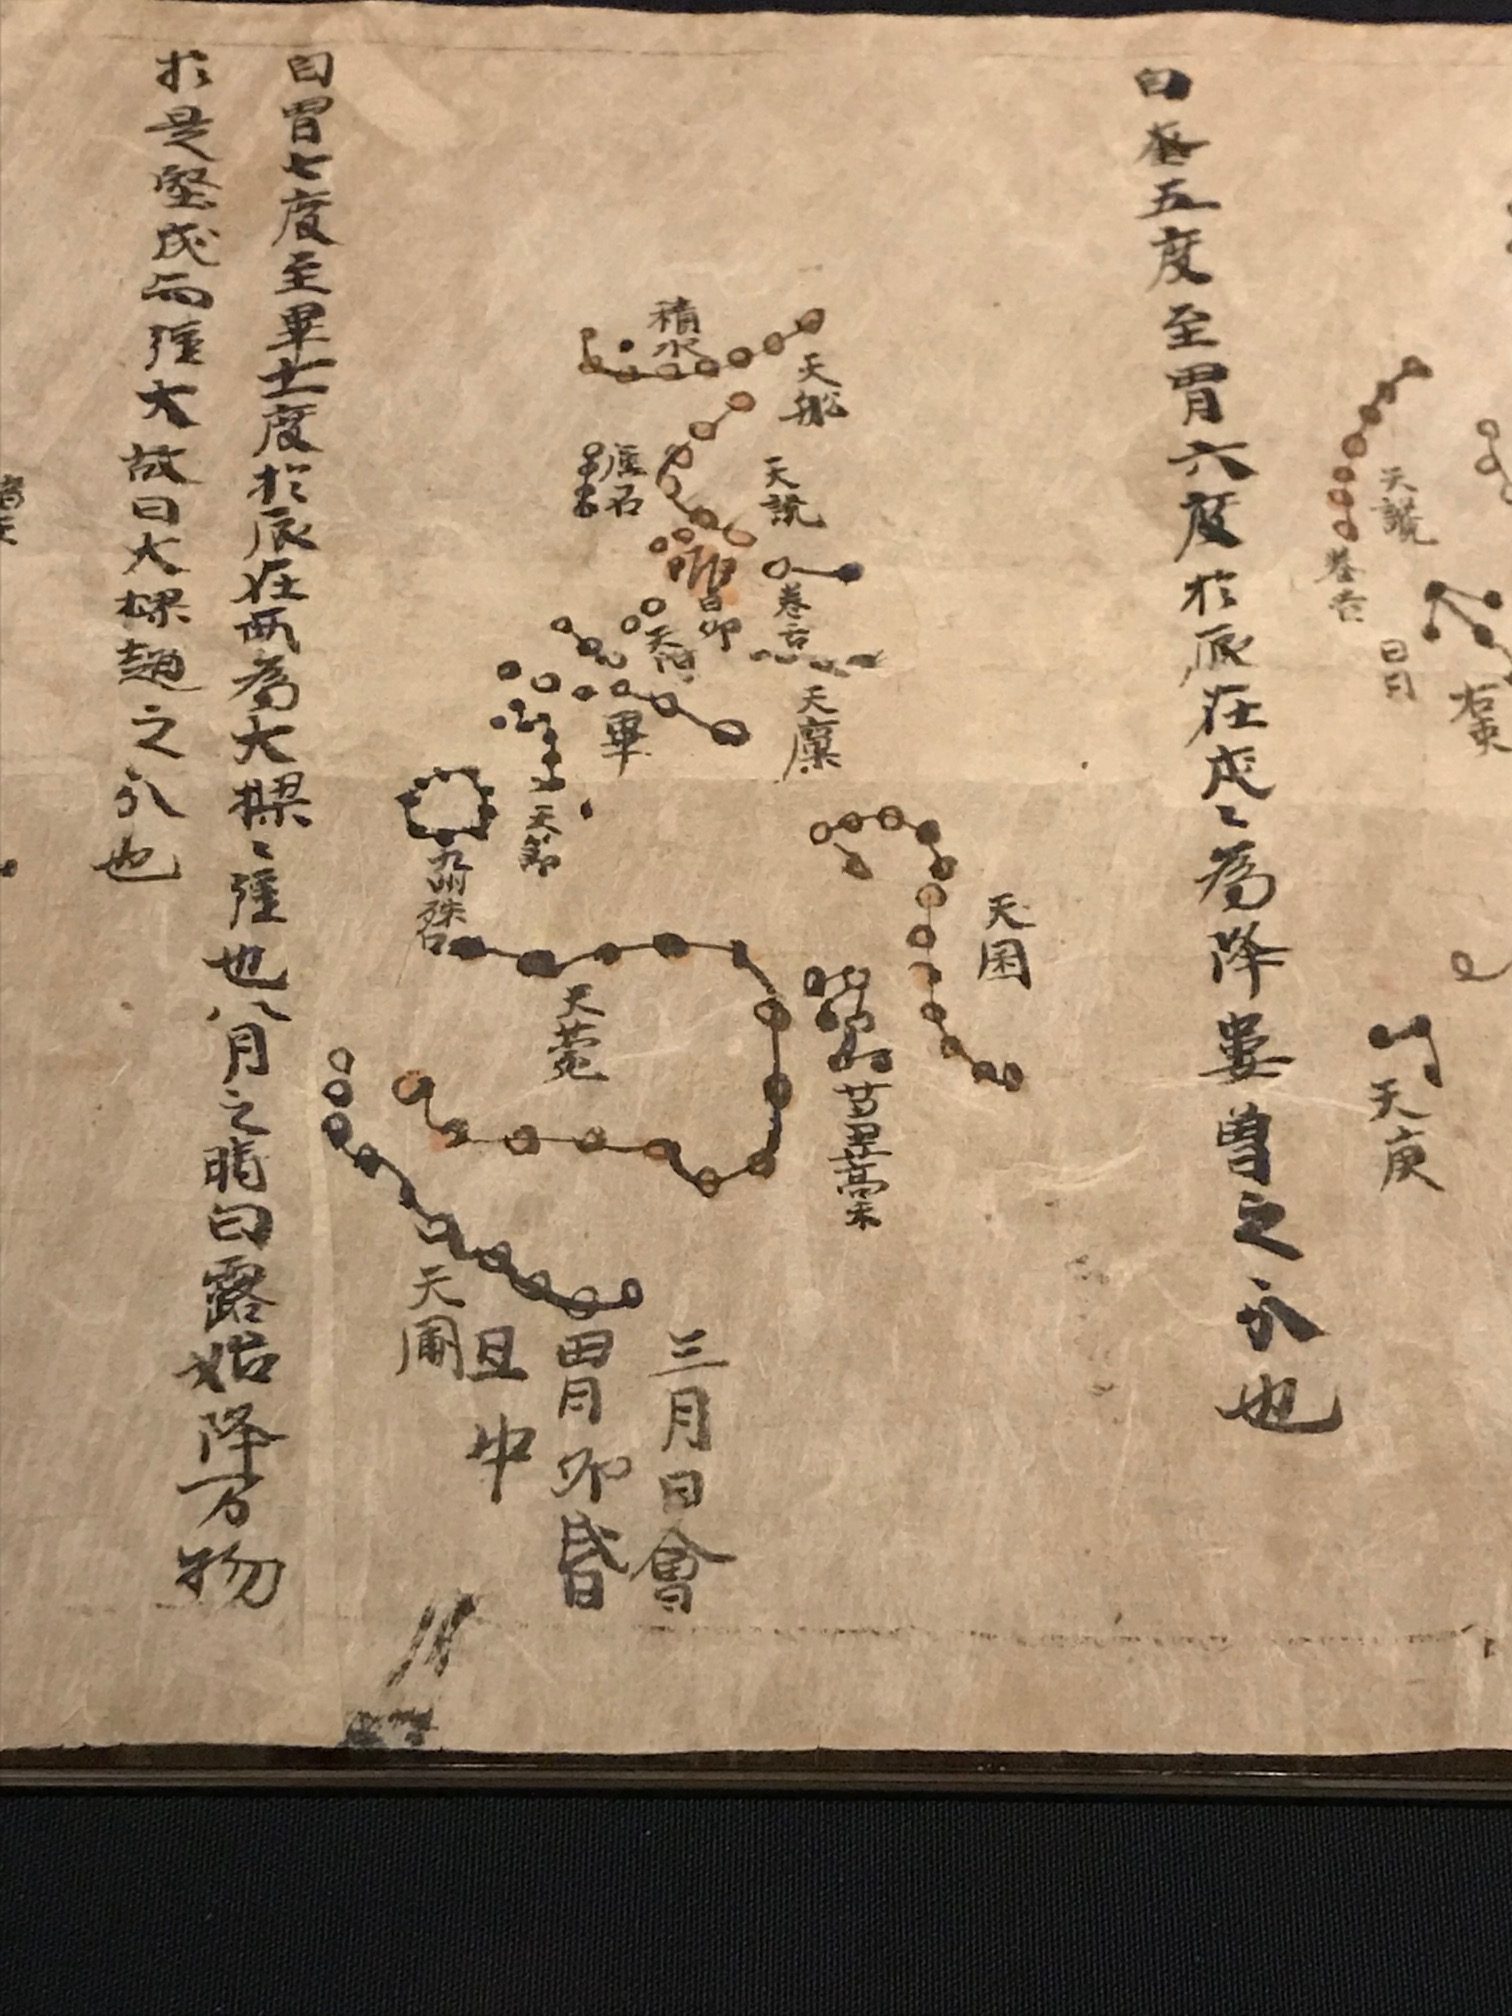 天讒
卷舌
右更
天庾
自奎五度至胃六度於辰在戌戌為降婁魯之分也
天船
積水
天讒
卷舌
天廩
昴
天阿
礪石
畢
天節
九州殊口
天囷
芻藁
天苑
天園
三月日會
胃昴昏
旦中
自胃七度至畢十一度於辰在酉為大樑樑強也八月之時白露始降万物
於是堅成而強大故曰大樑趙之分也